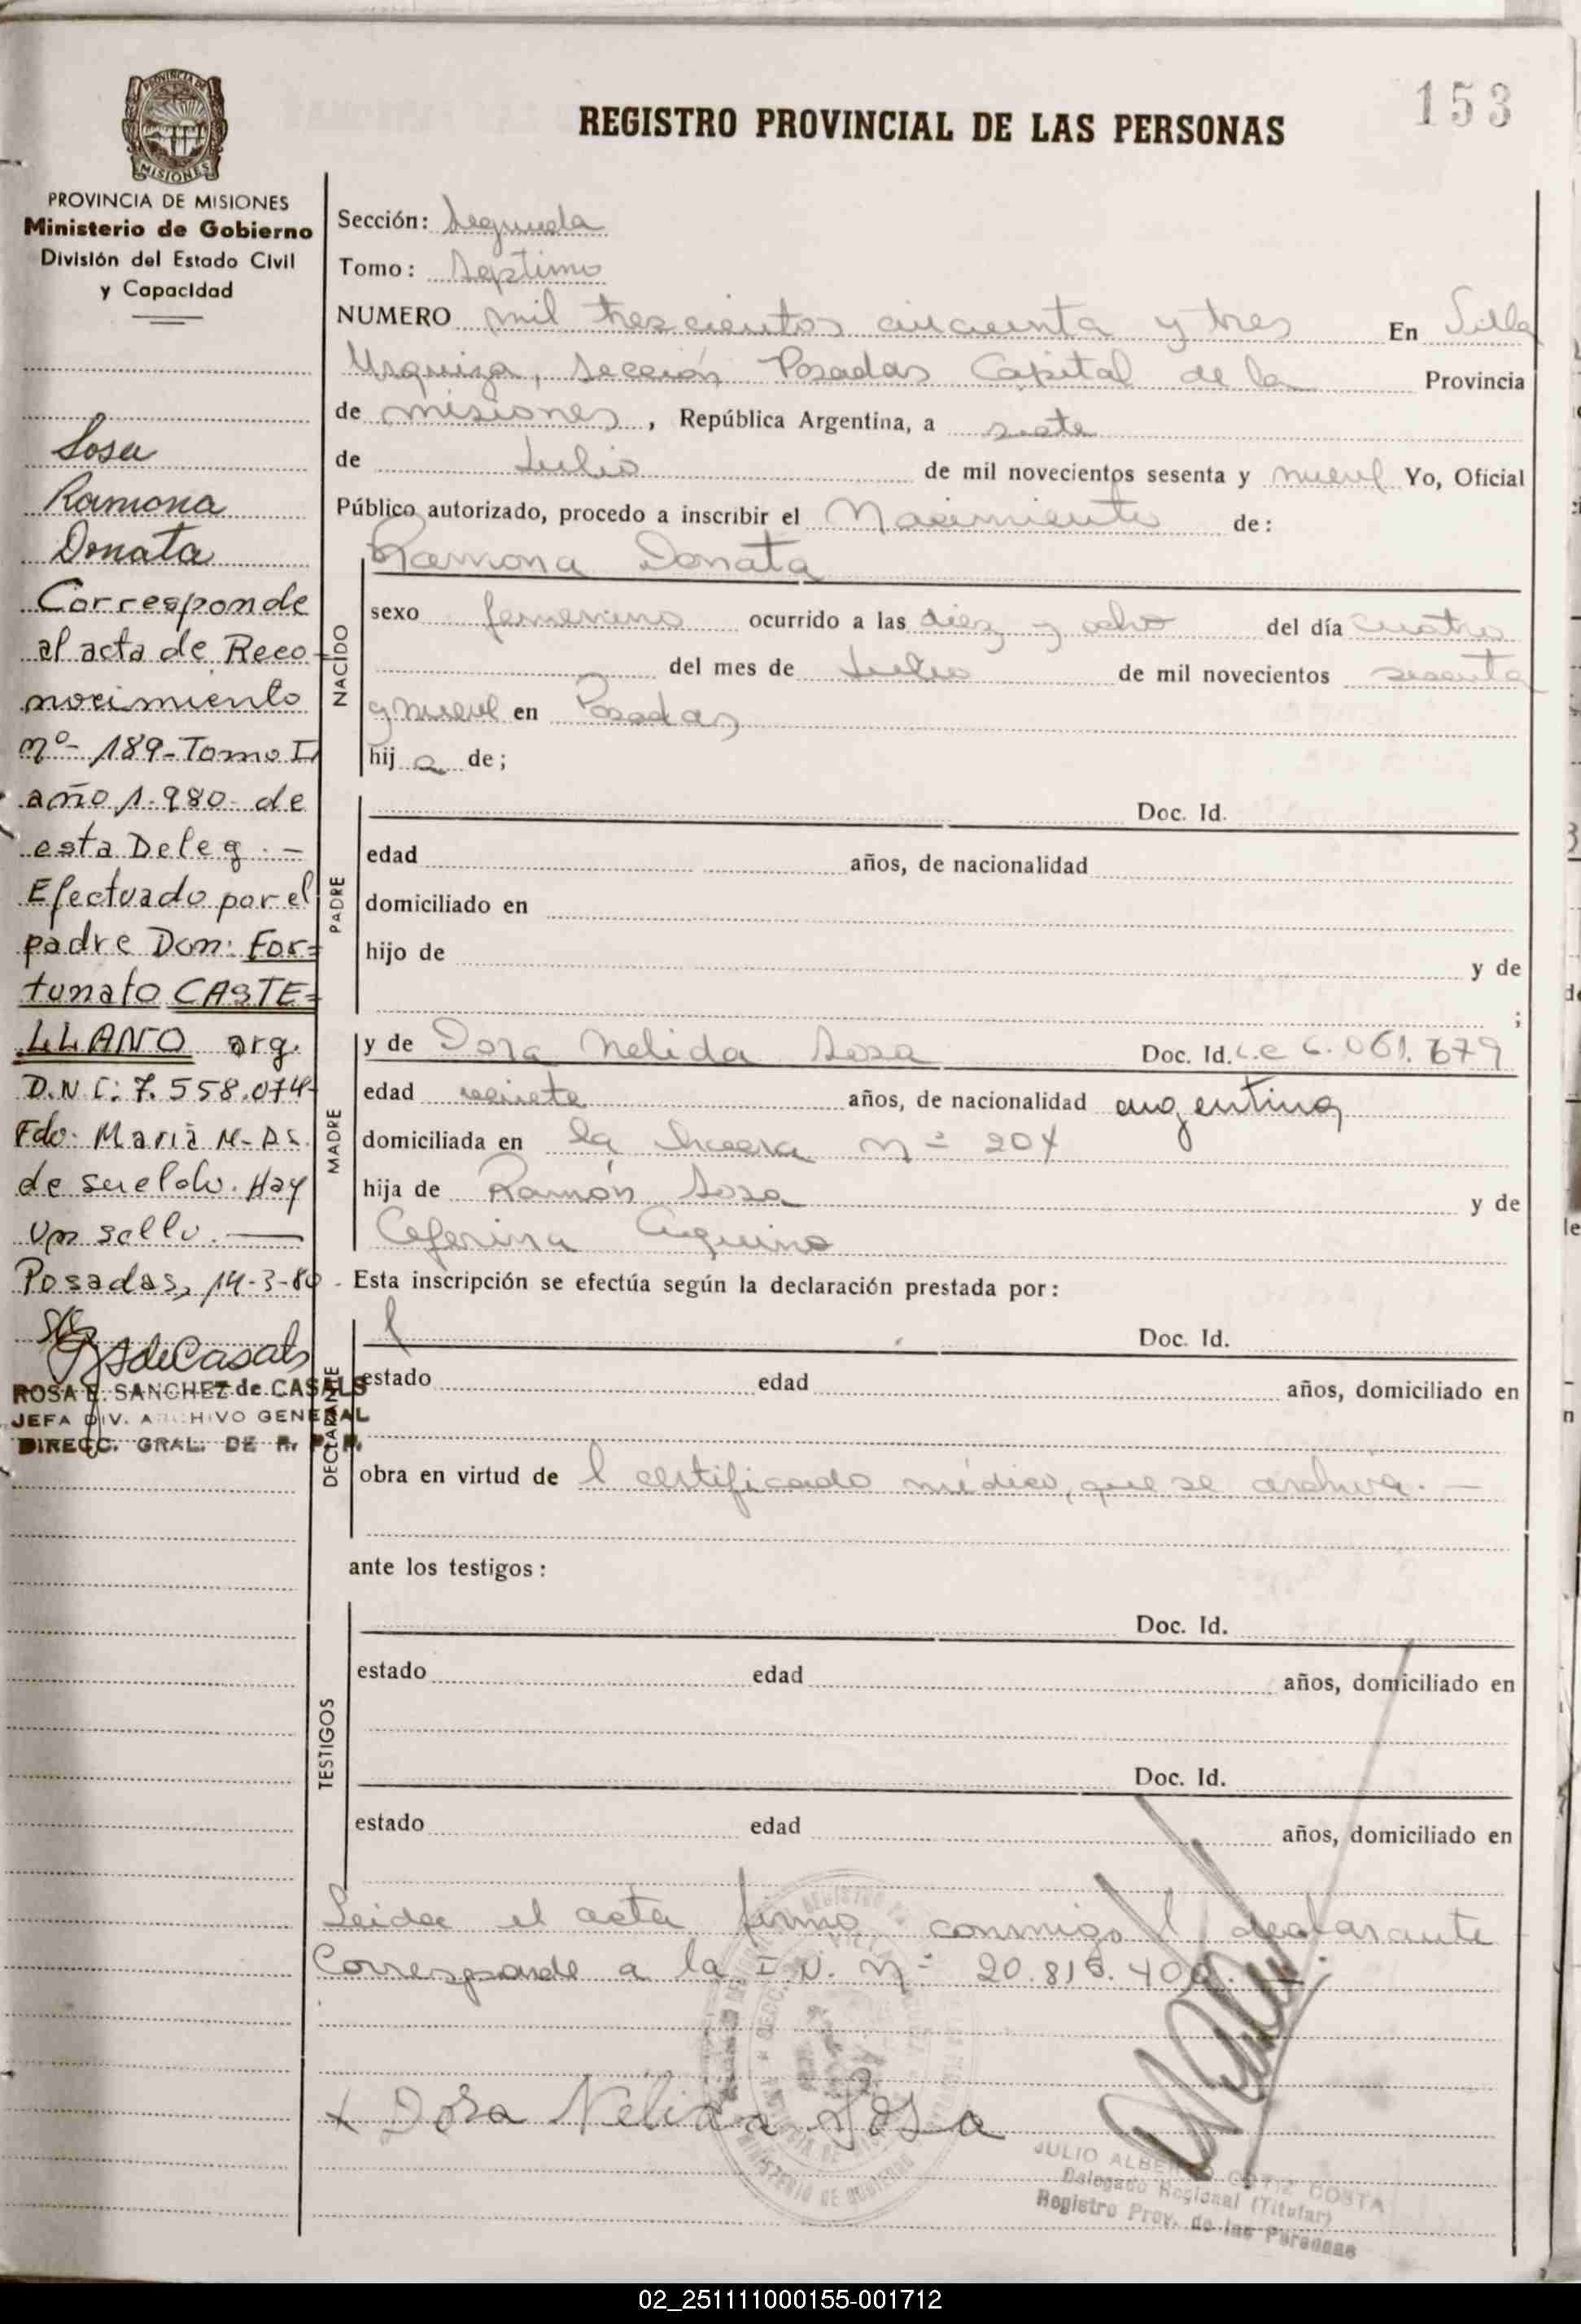 153
REGISTRO PROVINCIAL DE LAS PERSONAS
PROVINCIA DE MISIONES
Ministerio de Gobierno
División del Estado Civil
y Capacidad
Sosa
Ramona
Donata
Corresponde
al acta de Reco-
nocimiento
nº- 189-Tomo I
año 1.980- de
esta Deleg. -
Efectuado por el
padre Don: For=
tunato CASTE=
LLANO arg.
D.N.I: 7.558.074-
Fdo. Maria
de sueldo. Hay
un sello.
Posadas, 14-3-80-
ROSA E. SANCHEZ de CASALS
JEFA DIV. ARCHIVO GENERAL
DIRECC. GRAL. DE R. P. P.
Sección: Segunda
Tomo: Septimo
NUMERO mil trescientos cincuenta y tres En Villa
Urquiza, Sección Posadas Capital de la Provincia
de misiones, República Argentina, a siete
de Julio de mil novecientos sesenta y nueve Yo, Oficial
Público autorizado, procedo a inscribir el Nacimiento de:
Ramona Donata
NACIDO
sexo femenino ocurrido a las diez y ocho del día cuatro
del mes de Julio de mil novecientos sesenta
y nueve en Posadas
hij a de;
PADRE
Doc. Id.
edad años, de nacionalidad
domiciliado en
hijo de y de
;
MADRE
y de Dora Nelida Sosa Doc. Id. L.C 6.061.679
edad veinte años, de nacionalidad argentina
domiciliada en la nº 204
hija de Ramón Sosa y de
Ceferina Aquino
Esta inscripción se efectúa según la declaración prestada por:
DECLARANTE
Doc. Id.
estado edad años, domiciliado en
obra en virtud de l certificado médico, que se archiva. -
ante los testigos:
TESTIGOS
Doc. Id.
estado edad años, domiciliado en
Doc. Id.
estado edad años, domiciliado en
Leida el acta firma conmigo l declarante
Corresponde a la I.N. Nº 20.816.400.
x Dora Nelida Sosa
MINISTERIO DE GOBIERNO
JULIO ALBERTO ORTIZ COSTA
Delegado Regional (Titular)
Registro Prov. de las Personas
02_251111000155-001712